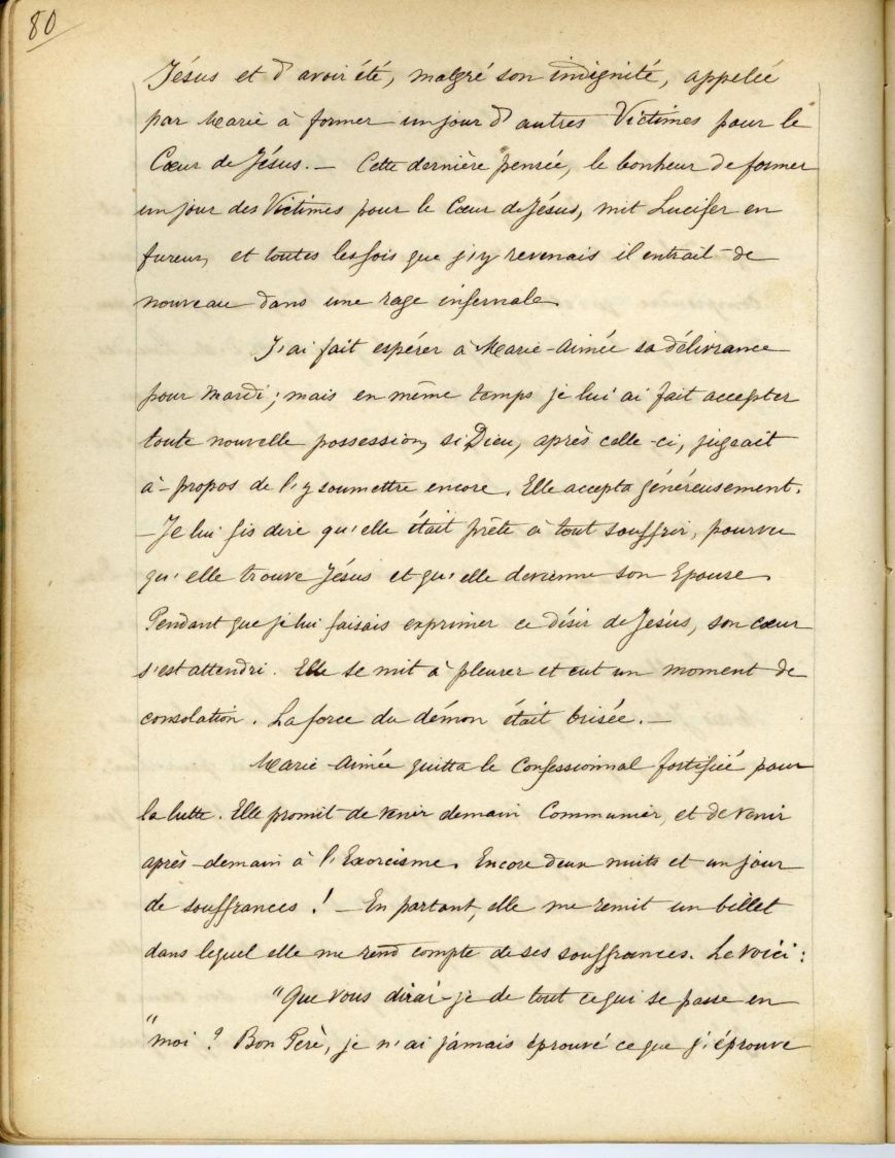 80
Jésus et d'avoir été, malgré son indignité, appelée
par Marie à former un jour d'autres Victimes pour le
Cœur de Jésus. — Cette dernière pensée, le bonheur de former
un jour des Victimes pour le Cœur de Jésus, mit Lucifer en
fureur, et toutes les fois que j'y revenais il entrait de
nouveau dans une rage infernale.
J'ai fait espérer à Marie-Aimée sa délivrance
pour Mardi ; mais en même temps je lui ai fait accepter
toute nouvelle possession, si Dieu, après celle-ci, jugeait
à-propos de l'y soumettre encore. Elle accepta généreusement.
— Je lui fis dire qu'elle était prête à tout souffrir, pourvu
qu'elle trouve Jésus et qu'elle devienne son Epouse.
Pendant que je lui faisais exprimer ce désir de Jésus, son cœur
s'est attendri. Elle se mit à pleurer et eut un moment de
consolation. La force du démon était brisée. —
Marie-Aimée quitta le Confessionnal fortifiée pour
la lutte. Elle promit de venir demain Communier, et de venir
après-demain à l'Exorcisme. Encore deux nuits et un jour
de souffrances ! — En partant, elle me remit un billet
dans lequel elle me rend compte de ses souffrances. Le voici :
"Que vous dirai-je de tout ce qui se passe en
"moi ? Bon Perè, je n'ai jamais éprouvé ce que j'éprouve